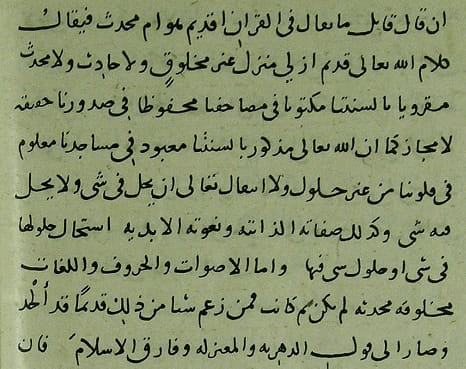 ان قال قايل ما يقال في القران اقديم هو ام محدث فيقال
كلام الله تعالى قديم ازلي منزل غير مخلوق ولا حادث ولا محدث
مقرويا بالسنتنا مكتوبا في مصاحفنا محفوظا في صدورنا حقيقه
لا مجاز كما ان الله تعالى مذكور بالسنتنا معبود في مساجدنا معلوم
في قلوبنا من غير حلول ولا انتقال تعالى ان يحل في شى ولا يحل
فيه شى وكذلك صفاته الذاتيه ونعوته الابديه استحال حلولها
في شى او حلول شى فيها واما الاصوات والحروف واللغات
مخلوقه محدثه لم يكن ثم كانت فمن زعم شيا من ذلك قديما قد ألحد
وصار الى قول الدهريه والمعتزله وفارق الاسلام فان